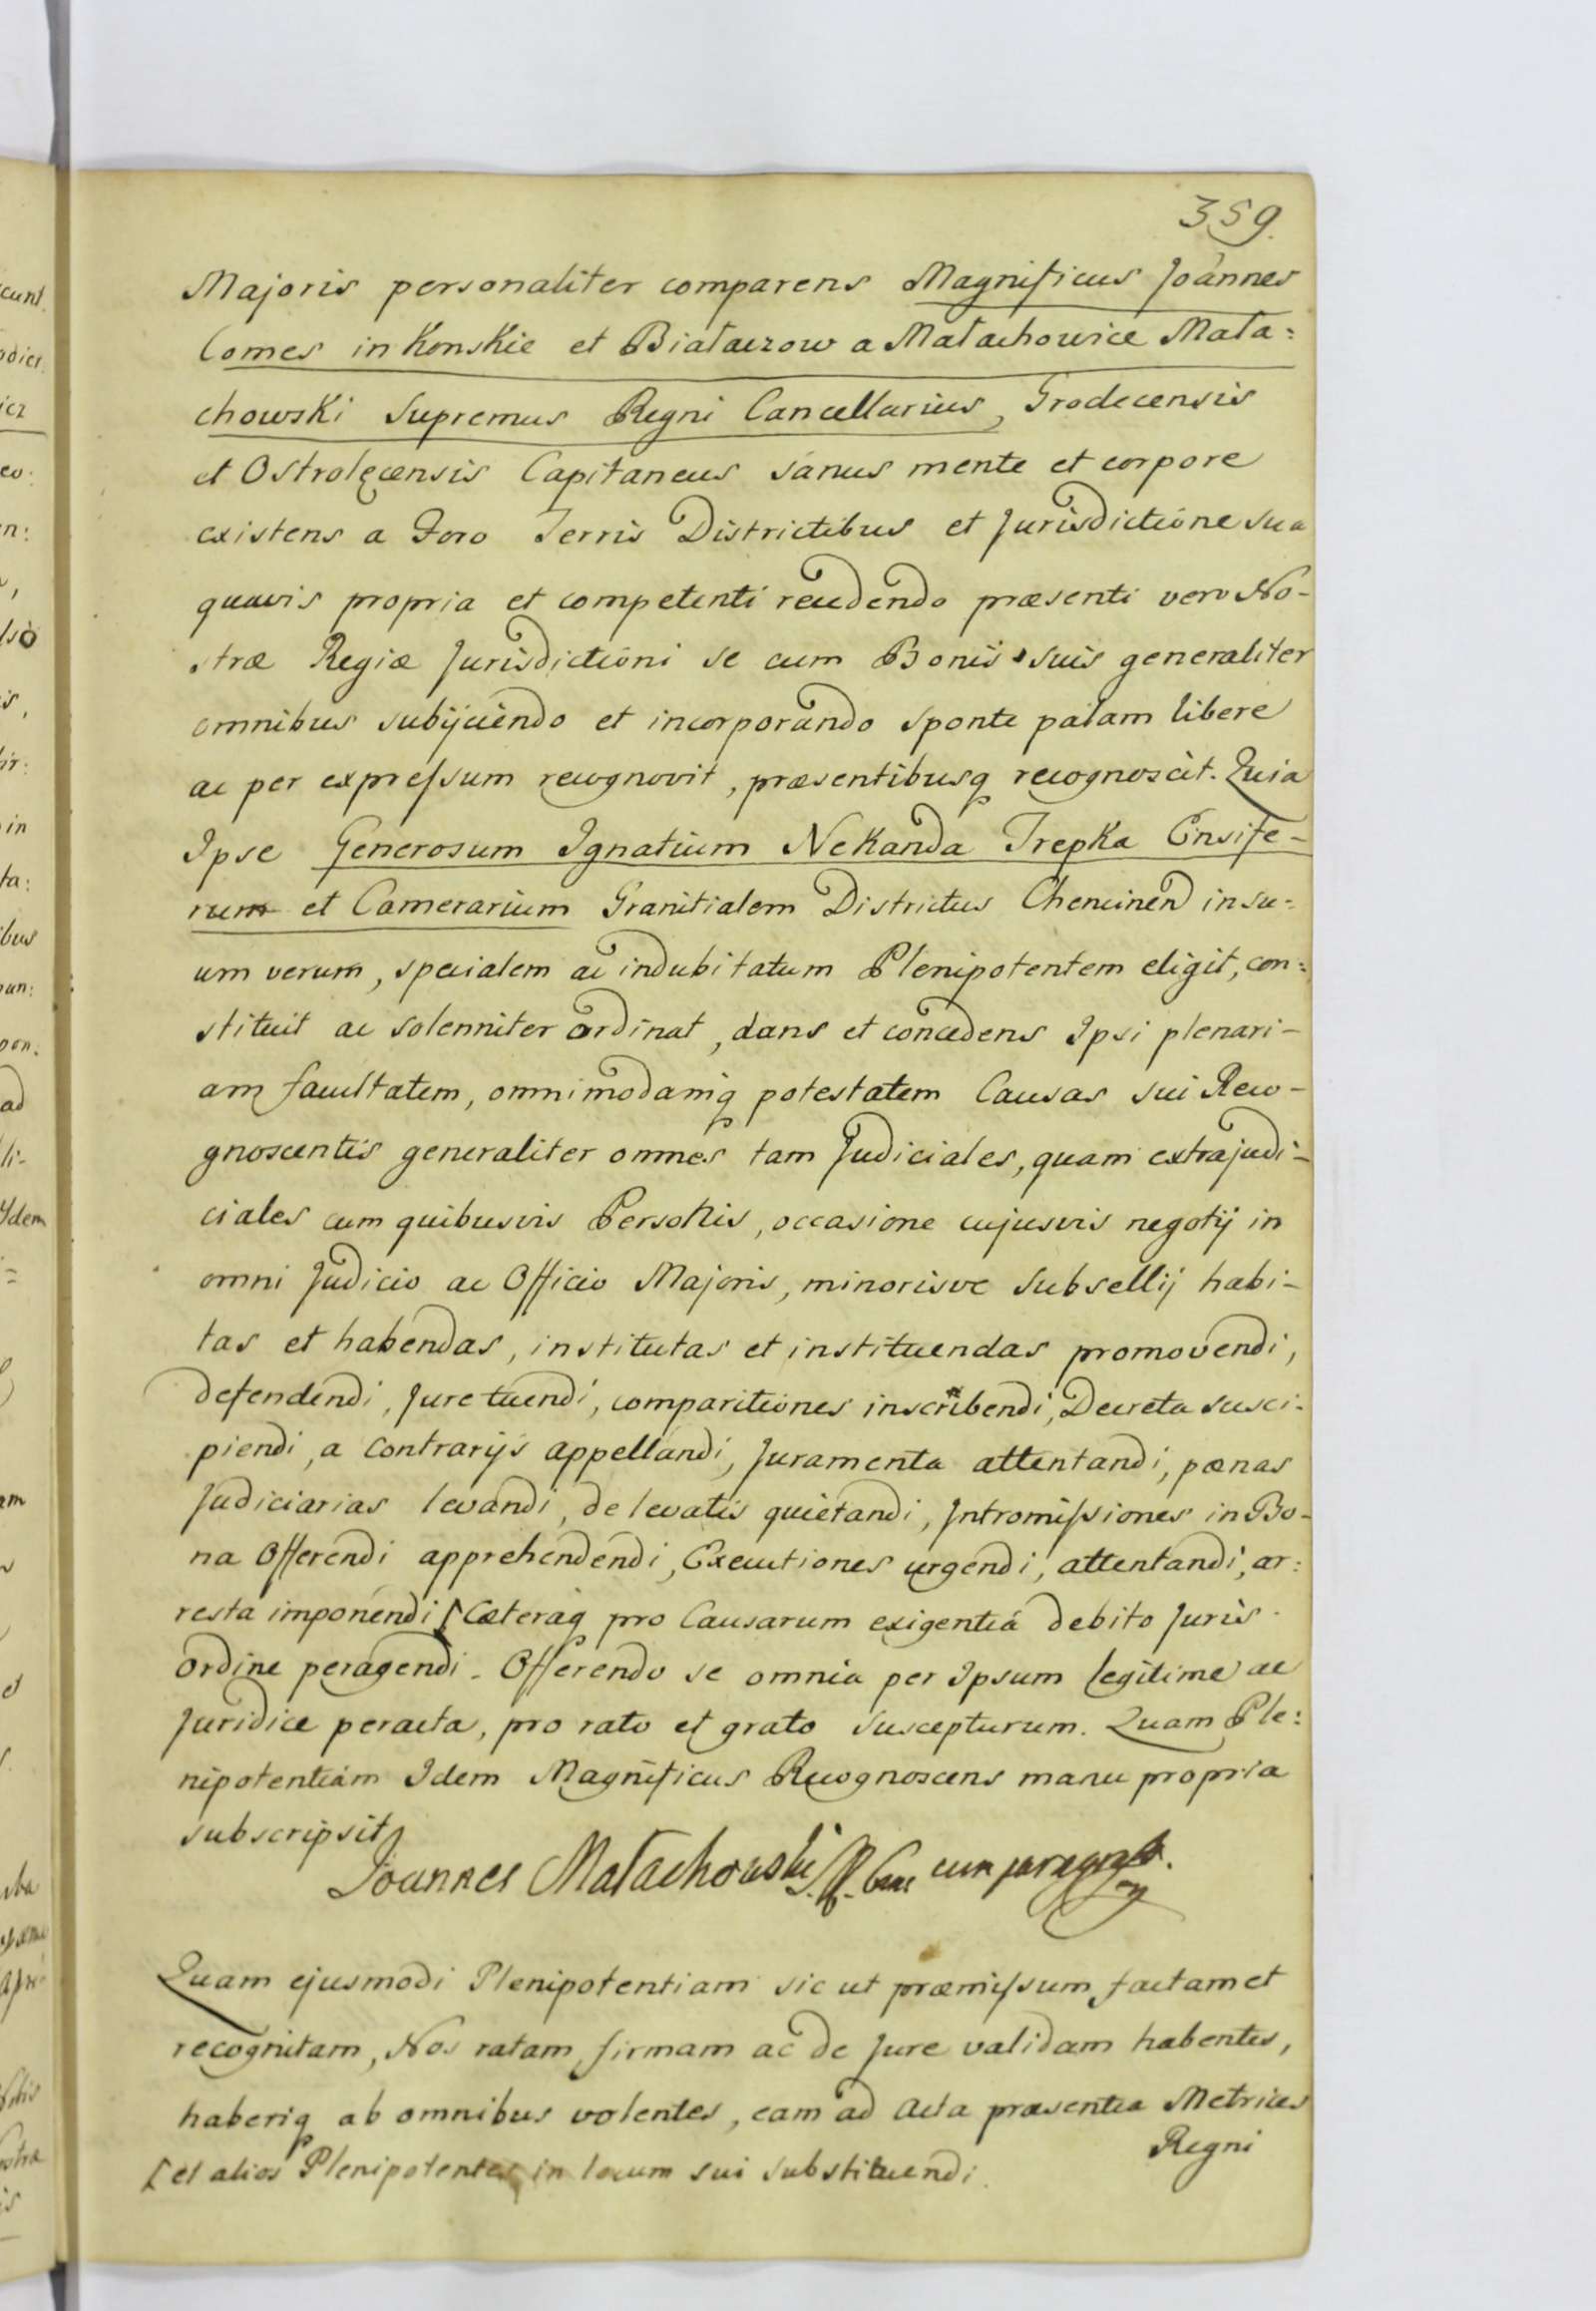 359.
Majoris personaliter comparens Magnificus Joannes
Comes in Konskie et Białaczow a Małachowice Mała=
chowski Supremus Regni Cancellarius, Grodecensis
et Ostrolęcensis Capitaneus sanus mente et corpore
existens a Foro Terris Districtibus et Jurisdictione sua
quavis propria et competenti recedendo præsenti vero No-
stræ Regiæ Jurisdictioni se cum Bonis suis generaliter
omnibus subijciendo et incorporando sponte palam libere
ac per expressum recognovit, præsentibusq recognoscit. Quia
Ipse Generosum Ignatium Nekanda Trepka Ensife-
rum et Camerarium Granitialem Districtus Chencinen in su=
um verum, specialem ac indubitatum Plenipotentem eligit, con=
stituit ac solenniter ordinat, dans et concedens Ipsi plenari-
am facultatem, omnimodamq potestatem Causas sui Reco-
gnoscentis generaliter omnes tam Judiciales, quam extrajudi=
ciales cum quibusvis Personis, occasione cujusvis negotij in
omni Judicio ac Officio Majoris, minorisve Subsellij habi-
tas et habendas, institutas et instituendas promovendi,
defendendi, Jure tuendi, comparitiones inscribendi, Decreta susci-
piendi, a Contrarijs appellandi, Juramenta attentandi, pœnas
Judiciarias levandi, de levatis quietandi, Intromissiones in Bo-
na Offerendi apprehendendi, Executiones urgendi, attentandi, ar=
resta imponendi [Cæteraq pro Causarum exigentia debito Juris
ordine peragendi. Offerendo se omnia per Ipsum legitime ac
Juridice peracta, pro rato et grato suscepturum. Quam Ple=
nipotentiam Idem Magnificus Recognoscens manu propria
subscripsit
Joannes Małachowski S. R. Canc cum paragrapho.
Quam ejusmodi Plenipotentiam sic ut præmissum factam et
recognitam, Nos ratam firmam ac de Jure validam habentes,
haberiq ab omnibus volentes, eam ad Acta præsentia Metrices
Regni
[et alios Plenipotentes in locum sui substituendi.